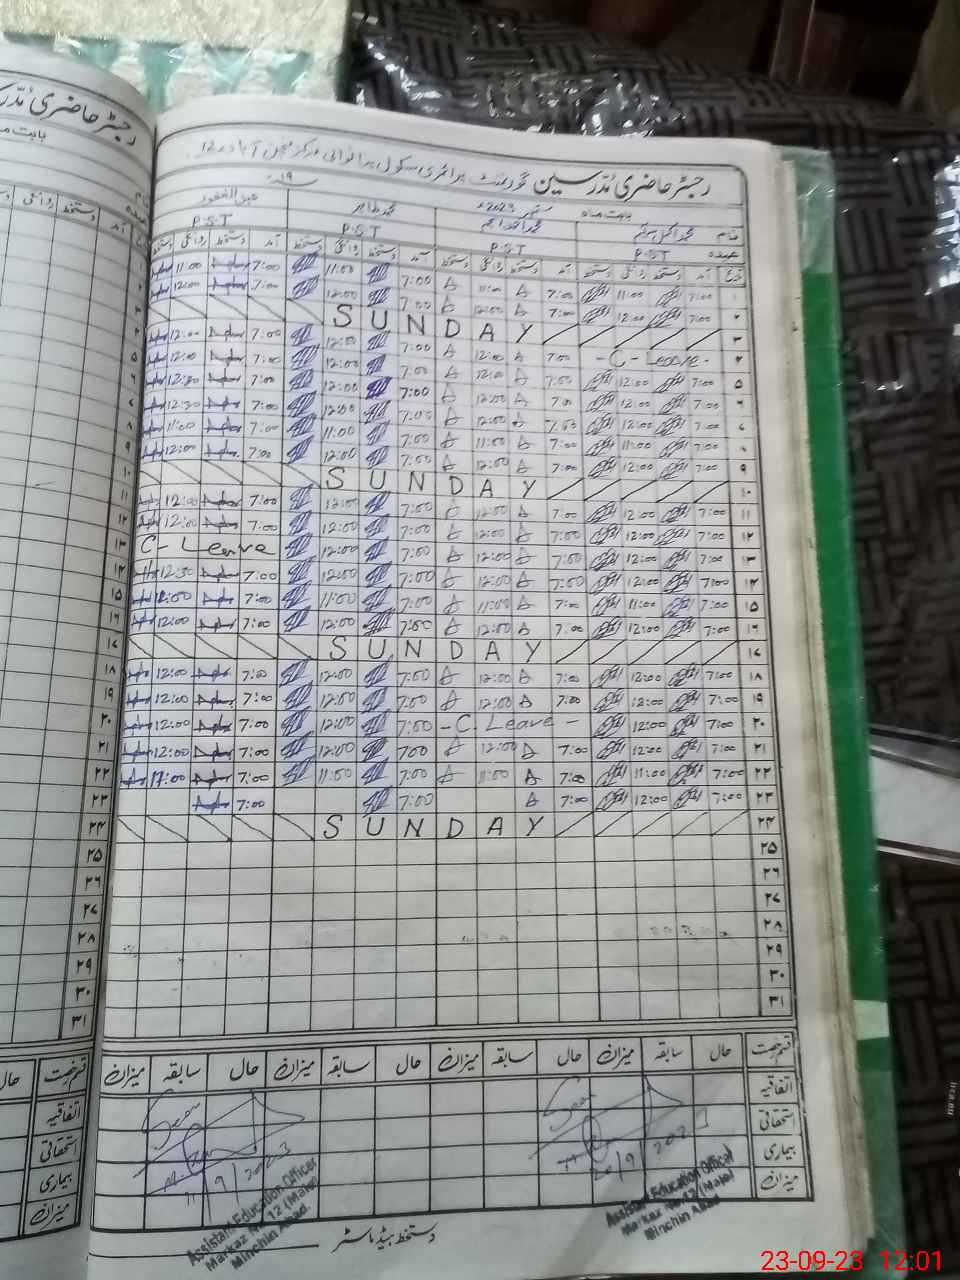 رجسٹر حاضری مدرسین گورنمنٹ پرائمری سکول
بابت ماہ ستمبر 2023 سنہ ۱۹ء
نام محمد طاہر عبدالغفور
عہدہ P.S.T P.S.T P.S.T P.S.T
تاریخ آمد دستخط روانگی دستخط آمد دستخط روانگی دستخط آمد دستخط روانگی دستخط آمد دستخط روانگی دستخط
۱ 7:00 11:00 7:00 11:00 7:00 11:00 7:00 11:00
۲ 7:00 12:00 7:00 12:00 7:00 12:00 7:00 12:00
۳ SUNDAY
۴ - C - Leave - 7:00 12:00 7:00 12:00 7:00 12:00
۵ 7:00 12:00 7:00 12:00 7:00 12:00 7:00 12:00
۶ 7:00 12:00 7:00 12:00 7:00 12:00 7:00 12:30
۷ 7:00 12:00 7:00 12:00 7:00 12:00 7:00 12:30
۸ 7:00 11:00 7:00 11:00 7:00 11:00 7:00 11:00
۹ 7:00 12:00 7:00 12:00 7:00 12:00 7:00 12:00
۱۰ SUNDAY
۱۱ 7:00 12:00 7:00 12:00 7:00 12:00 7:00 12:00
۱۲ 7:00 12:00 7:00 12:00 7:00 12:00 7:00 12:00
۱۳ 7:00 12:00 7:00 12:00 7:00 12:00 C - Leave
۱۴ 7:00 12:00 7:00 12:00 7:00 12:00 7:00 12:30
۱۵ 7:00 11:00 7:00 11:00 7:00 11:00 7:00 11:00
۱۶ 7:00 12:00 7:00 12:00 7:00 12:00 7:00 12:00
۱۷ SUNDAY
۱۸ 7:00 12:00 7:00 12:00 7:00 12:00 7:00 12:00
۱۹ 7:00 12:00 7:00 12:00 7:00 12:00 7:00 12:00
۲۰ 7:00 12:00 - C. Leave - 7:00 12:00 7:00 12:00
۲۱ 7:00 12:00 7:00 12:00 7:00 12:00 7:00 12:00
۲۲ 7:00 11:00 7:00 11:00 7:00 11:00 7:00 11:00
۲۳ 7:00 12:00 7:00 7:00 7:00
۲۴ SUNDAY
۲۵
۲۶
۲۷
۲۸
۲۹
۳۰
۳۱
قسم رخصت حال سابقہ میزان حال سابقہ میزان حال سابقہ میزان حال سابقہ میزان
اتفاقیہ
استحقاقی
بیماری
میزان
20/9/202
Assistant Education Officer
Markaz No.12 (Male)
Minchin Abad
11/9/2023
Assistant Education Officer
Markaz No.12 (Male)
Minchin Abad.
دستخط ہیڈ ماسٹر
رجسٹر حاضری مدرس
بابت ماہ
23-09-23 12:01